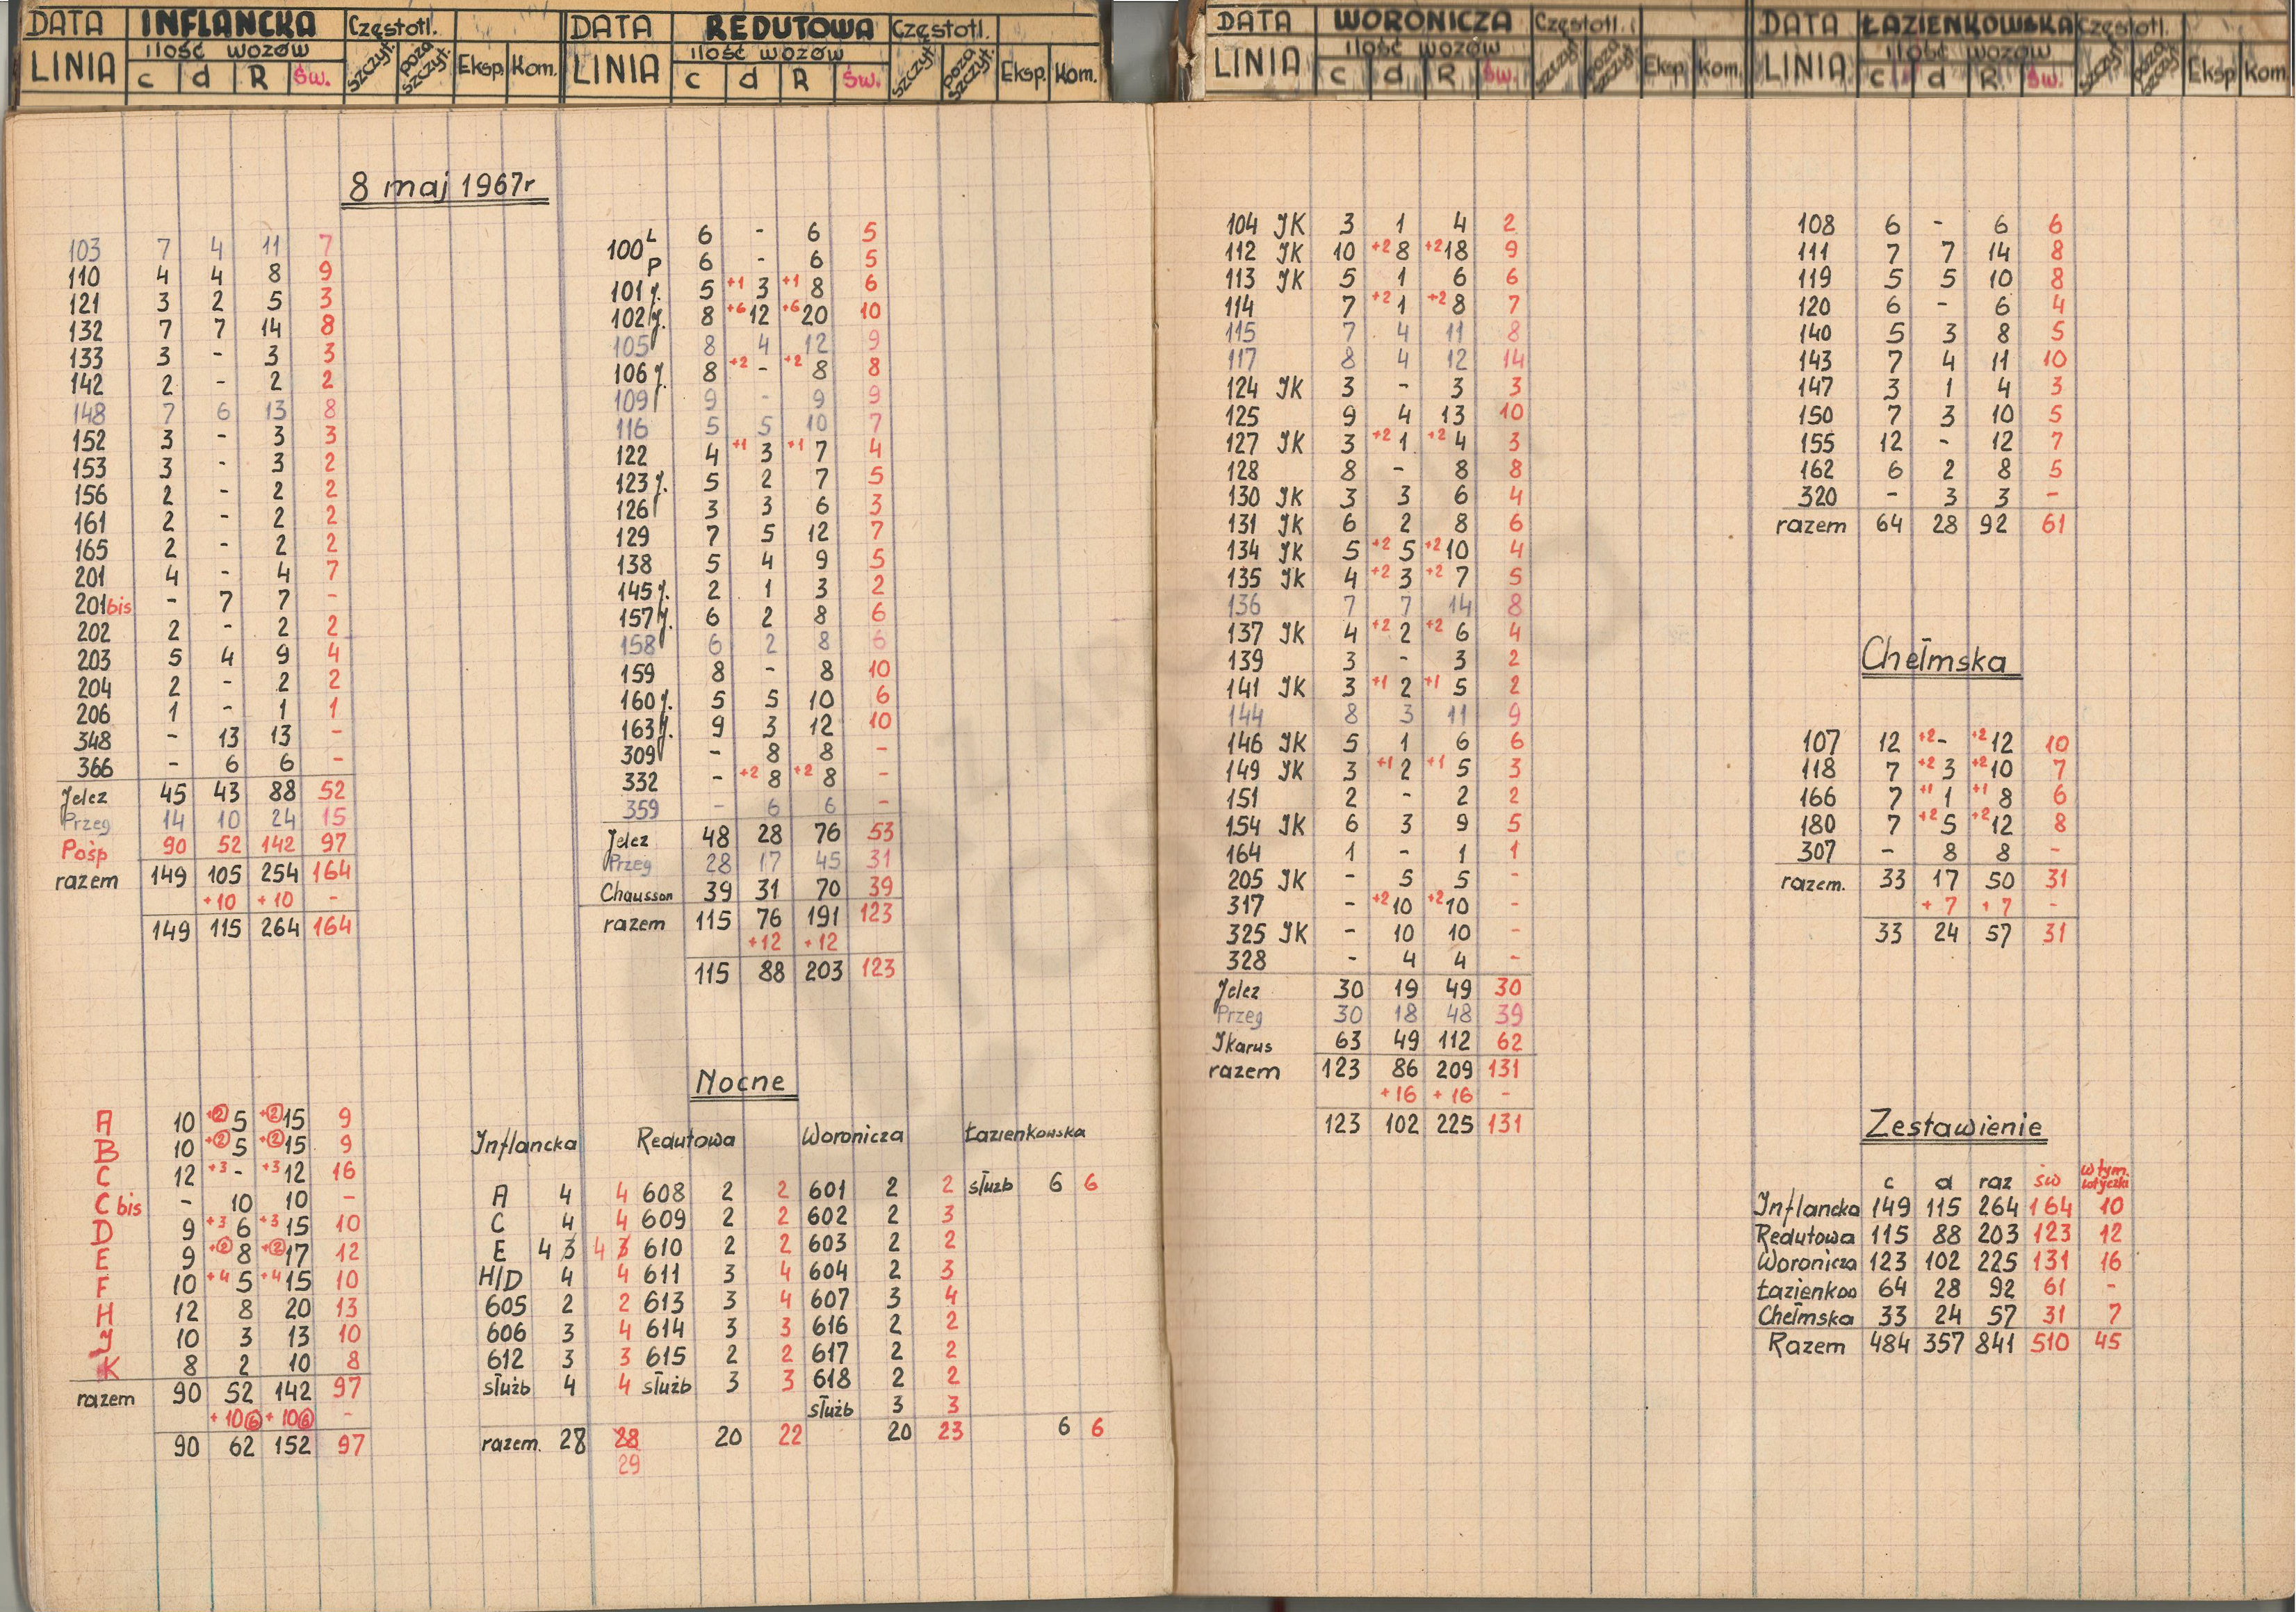 DATA INFLANCKA Częstotl.
LINIA ilość wozów szczyt. poza szczyt. Eksp. Kom.
c d R Św.
8 maj 1967r
103 7 4 11 7
110 4 4 8 9
121 3 2 5 3
132 7 7 14 8
133 3 - 3 3
142 2 - 2 2
148 7 6 13 8
152 3 - 3 3
153 3 - 3 2
156 2 - 2 2
161 2 - 2 2
165 2 - 2 2
201 4 - 4 7
201bis - 7 7 -
202 2 - 2 2
203 5 4 9 4
204 2 - 2 2
206 1 - 1 1
348 - 13 13 -
366 - 6 6 -
Jelcz 45 43 88 52
Przeg 14 10 24 15
Pośp 90 52 142 97
razem 149 105 254 164
+10 +10 -
149 115 264 164
A 10 +2 5 +2 15 9
B 10 +2 5 +2 15 9
C 12 +3 - +3 12 16
C bis - 10 10 -
D 9 +3 6 +3 15 10
E 9 +2 8 +2 17 12
F 10 +4 5 +4 15 10
H 12 8 20 13
J 10 3 13 10
K 8 2 10 8
razem 90 52 142 97
+10 6 +10 6 -
90 62 152 97
DATA REDUTOWA Częstotl.
LINIA ilość wozów szczyt. poza szczyt. Eksp. Kom.
c d R Św.
100 L 6 - 6 5
P 6 - 6 5
101 j. 5 +1 3 +1 8 6
102 j. 8 +6 12 +6 20 10
105 8 4 12 9
106 j. 8 +2 - +2 8 8
109 9 - 9 9
116 5 5 10 7
122 4 +1 3 +1 7 4
123 j. 5 2 7 5
126 3 3 6 3
129 7 5 12 7
138 5 4 9 5
145 j. 2 1 3 2
157 j. 6 2 8 6
158 6 2 8 6
159 8 - 8 10
160 j. 5 5 10 6
163 j. 9 3 12 10
309 - 8 8 -
332 - +2 8 +2 8 -
359 - 6 6 -
Jelcz 48 28 76 53
Przeg 28 17 45 31
Chausson 39 31 70 39
razem 115 76 191 123
+12 +12
115 88 203 123
Nocne
Inflancka Redutowa Woronicza Łazienkowska
A 4 4 608 2 2 601 2 2 służb 6 6
C 4 4 609 2 2 602 2 3
E 4 3 4 3 610 2 2 603 2 2
H/D 4 4 611 3 4 604 2 3
605 2 2 613 3 4 607 3 4
606 3 4 614 3 3 616 2 2
612 3 3 615 2 2 617 2 2
służb 4 4 służb 3 3 618 2 2
służb 3 3
razem. 28 28 20 22 20 23 6 6
29
DATA WORONICZA Częstotl.
LINIA ilość wozów szczyt. poza szczyt. Eksp. Kom.
c d R Św.
104 JK 3 1 4 2
112 JK 10 +2 8 +2 18 9
113 JK 5 1 6 6
114 7 +2 1 +2 8 7
115 7 4 11 8
117 8 4 12 14
124 JK 3 - 3 3
125 9 4 13 10
127 JK 3 +2 1 +2 4 3
128 8 - 8 8
130 JK 3 3 6 4
131 JK 6 2 8 6
134 JK 5 +2 5 +2 10 4
135 JK 4 +2 3 +2 7 5
136 7 7 14 8
137 JK 4 +2 2 +2 6 4
139 3 - 3 2
141 JK 3 +1 2 +1 5 2
144 8 3 11 9
146 JK 5 1 6 6
149 JK 3 +1 2 +1 5 3
151 2 - 2 2
154 JK 6 3 9 5
164 1 - 1 1
205 JK - 5 5 -
317 - +2 10 +2 10 -
325 JK - 10 10 -
328 - 4 4 -
Jelcz 30 19 49 30
Przeg 30 18 48 39
Jkarus 63 49 112 62
razem 123 86 209 131
+16 +16 -
123 102 225 131
DATA ŁAZIENKOWSKA Częstotl.
LINIA ilość wozów szczyt. poza szczyt. Eksp Kom.
c d R. Św.
108 6 - 6 6
111 7 7 14 8
119 5 5 10 8
120 6 - 6 4
140 5 3 8 5
143 7 4 11 10
147 3 1 4 3
150 7 3 10 5
155 12 - 12 7
162 6 2 8 5
320 - 3 3 -
razem 64 28 92 61
Chełmska
107 12 +2 - +2 12 10
118 7 +2 3 +2 10 7
166 7 +1 1 +1 8 6
180 7 +2 5 +2 12 8
307 - 8 8 -
razem. 33 17 50 31
+7 +7 -
33 24 57 31
Zestawienie
c d raz św w tym.
Inflancka 149 115 264 164 10
Redutowa 115 88 203 123 12
Woronicza 123 102 225 131 16
Łazienkow 64 28 92 61 -
Chełmska 33 24 57 31 7
Razem 484 357 841 510 45